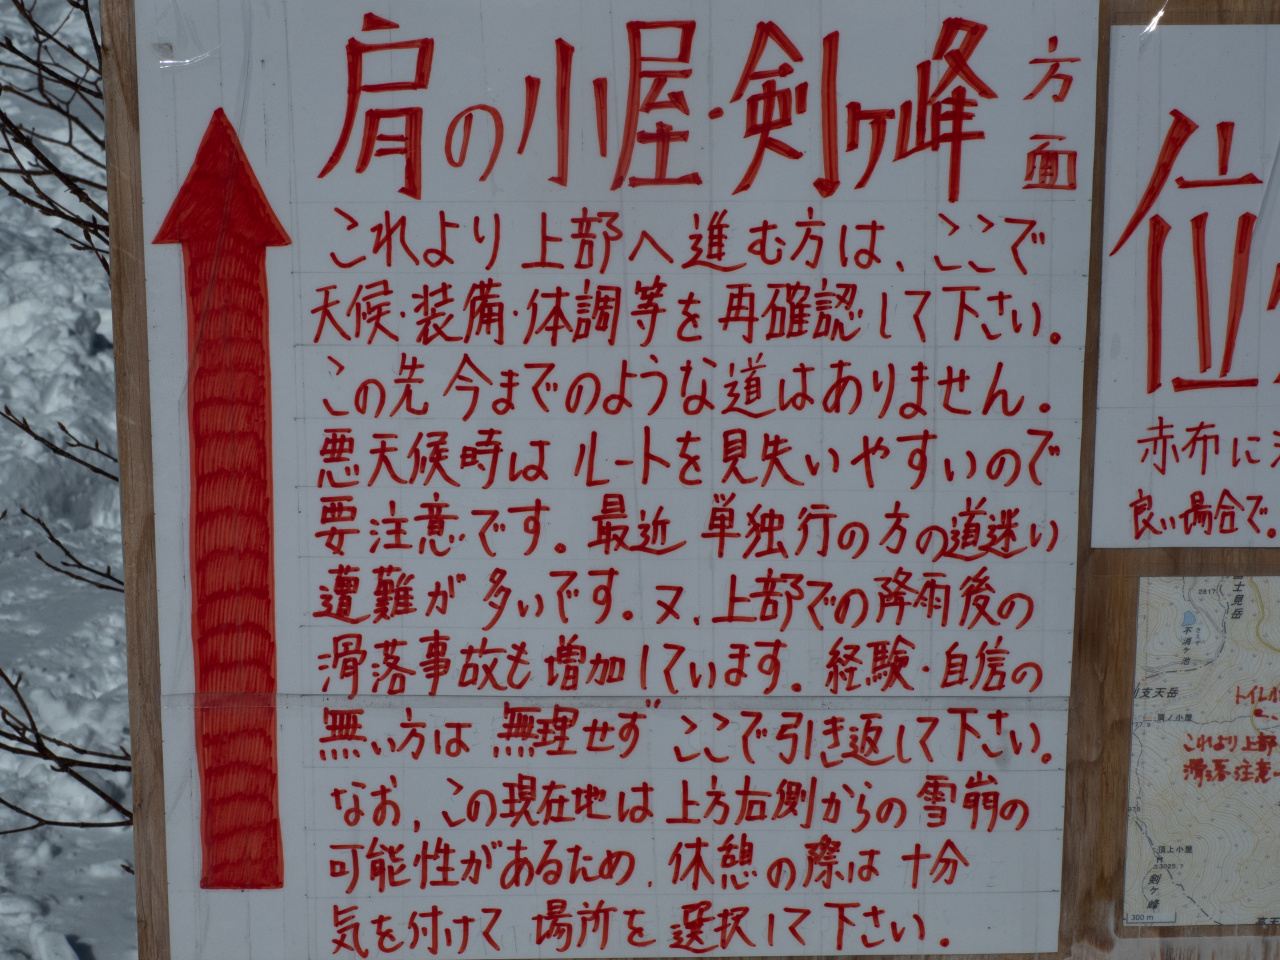 肩の小屋・剣ヶ峰 方面
これより上部へ進む方は、ここで
天候・装備・体調等を再確認して下さい。
この先今までのような道はありません。
悪天候時はルートを見失いやすいので
要注意です。最近単独行の方の道迷い
遭難が多いです。又、上部での降雨後の
滑落事故も増加しています。経験・自信の
無い方は無理せずここで引き返して下さい。
なお、この現在地は上方右側からの雪崩の
可能性があるため、休憩の際は十分
気を付けて場所を選択して下さい。
位
赤布に
良い場合で。
富士見岳
2817
不消ヶ池
支天岳
肩ノ小屋
トイレ
これより上部
滑落注意
頂上小屋
3025.
剣ヶ峰
300 m